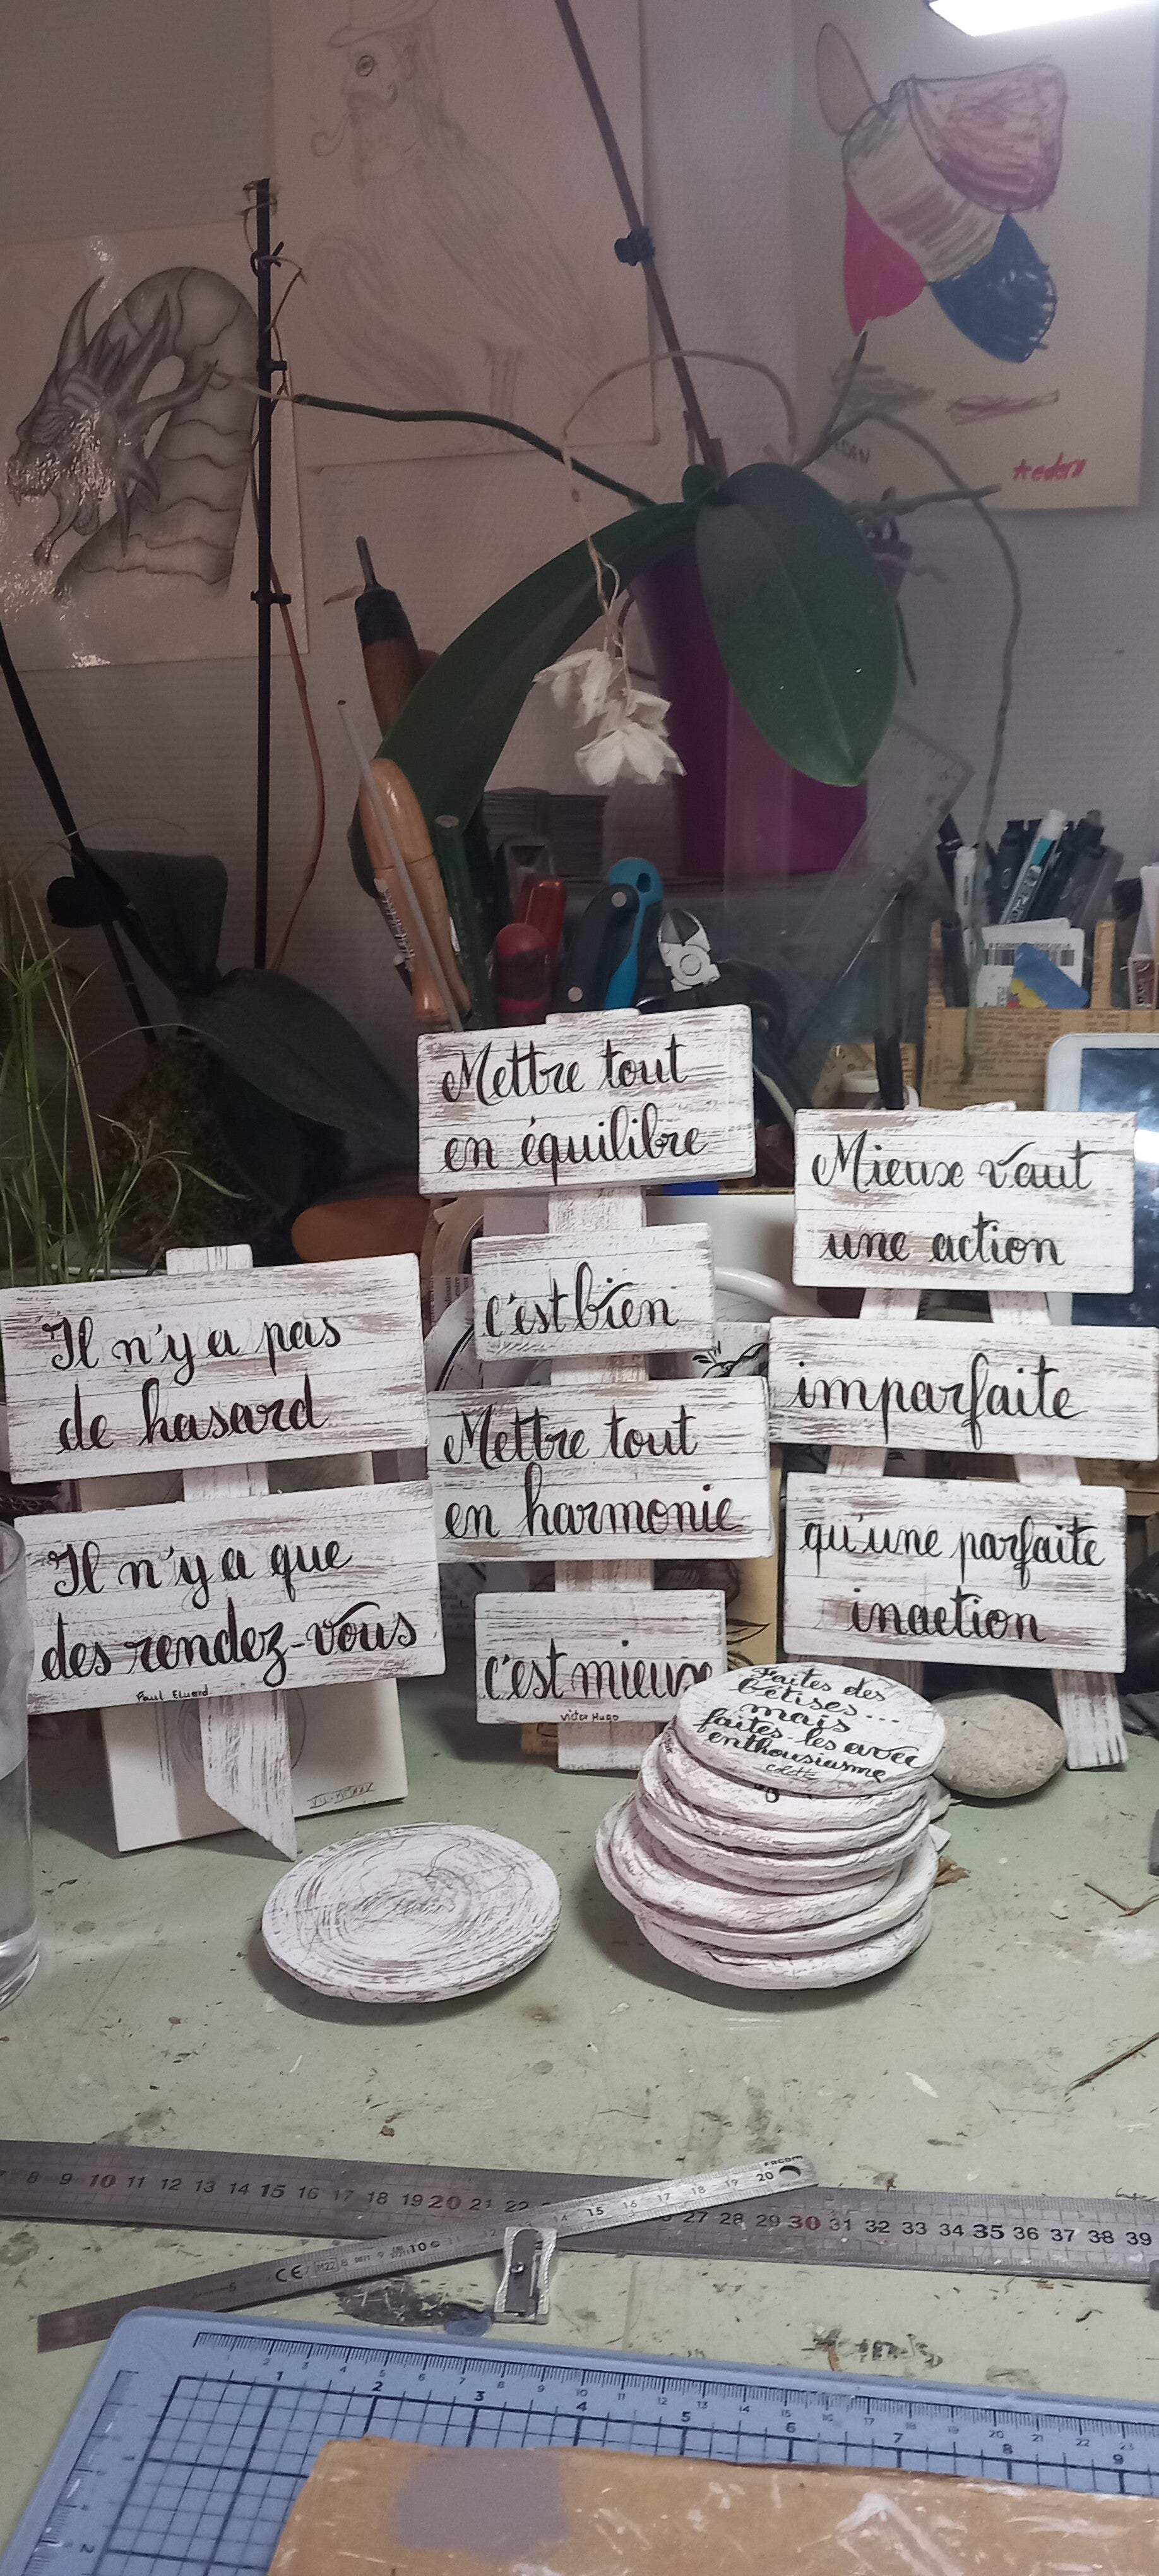 Il n'y a pas
de hasard
Il n'y a que
des rendez-vous
Paul Eluard
Mettre tout
en équilibre
c'est bien
Mettre tout
en harmonie
c'est mieux
Victor Hugo
Mieux vaut
une action
imparfaite
qu'une parfaite
inaction
Faites des
bêtises...
mais
faites-les avec
enthousiasme
Colette
8 9 10 11 12 13 14 15 16 17 18 19 20 21 22
27 28 29 30 31 32 33 34 35 36 37 38 39
facom
15 16 17 18 19 20
1 2 3 4 5 6 7 8 9